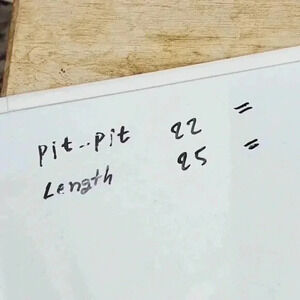 Pit--Pit 22 "
Length 25 "